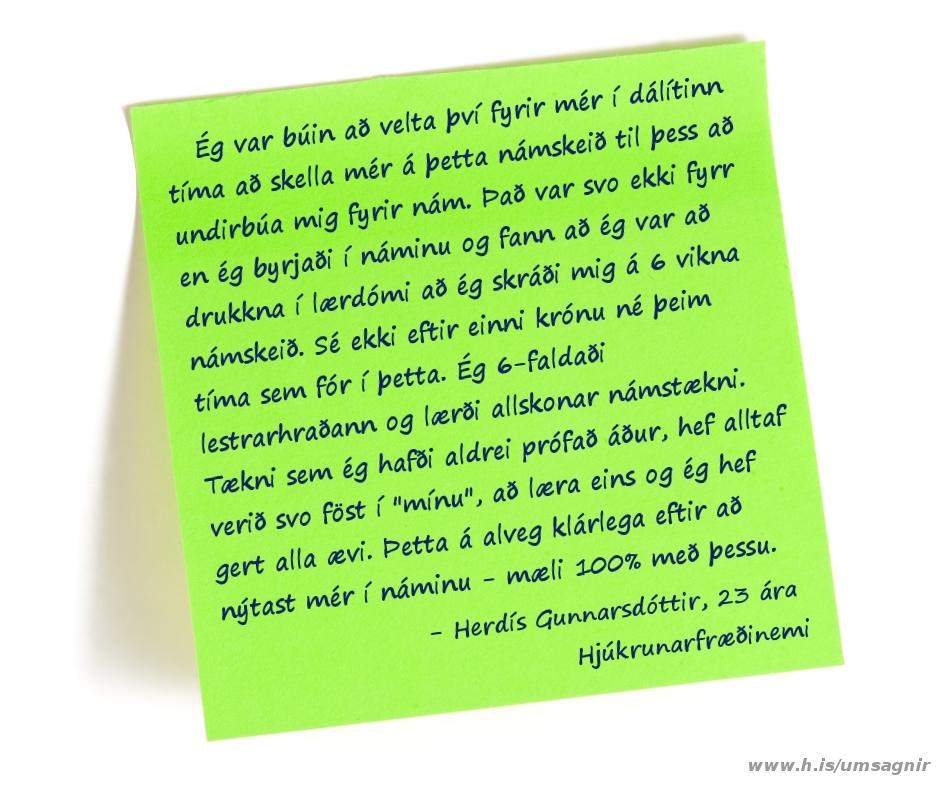 Ég var búin að velta því fyrir mér í dálítinn
tíma að skella mér á þetta námskeið til þess að
undirbúa mig fyrir nám. Það var svo ekki fyrr
en ég byrjaði í náminu og fann að ég var að
drukkna í lærdómi að ég skráði mig á 6 vikna
námskeið. Sé ekki eftir einni krónu né þeim
tíma sem fór í þetta. Ég 6-faldaði
lestrarhraðann og lærði allskonar námstækni.
Tækni sem ég hafði aldrei prófað áður, hef alltaf
verið svo föst í "mínu", að læra eins og ég hef
gert alla ævi. Þetta á alveg klárlega eftir að
nýtast mér í náminu - mæli 100% með þessu.
- Herdís Gunnarsdóttir, 23 ára
Hjúkrunarfræðinemi
www.h.is/umsagnir